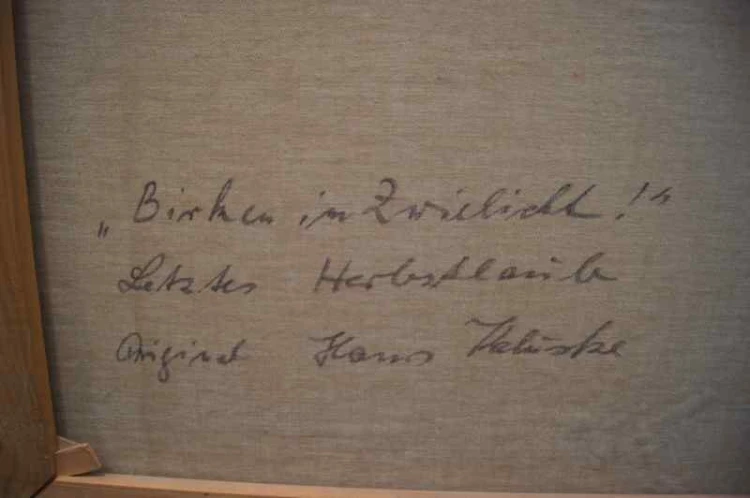 „Birken im Zwielicht!“
Letztes Herbstlaub
Original Hans